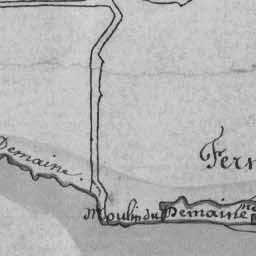 Demaine.
Fern
Moulin du Demaine